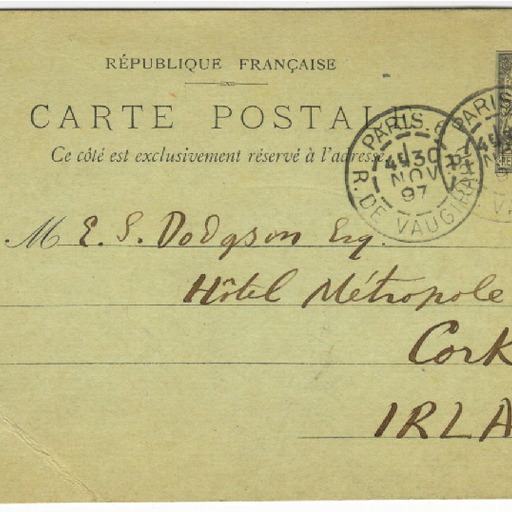 RÉPUBLIQUE FRANÇAISE
CARTE POSTALE
Ce côté est exclusivement réservé à l'adresse.
PARIS
4E 30
NOV
97
R. DE VAUGIRARD
PARIS
M E. S. Dodgson Esq.
Hôtel Métropole
Cork
IRLA